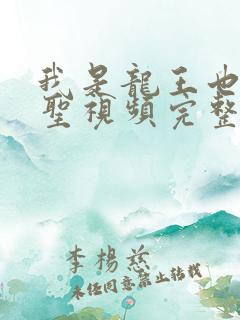 我是龍王也
聖視頻完整
李楊慈
未经同意禁止转载